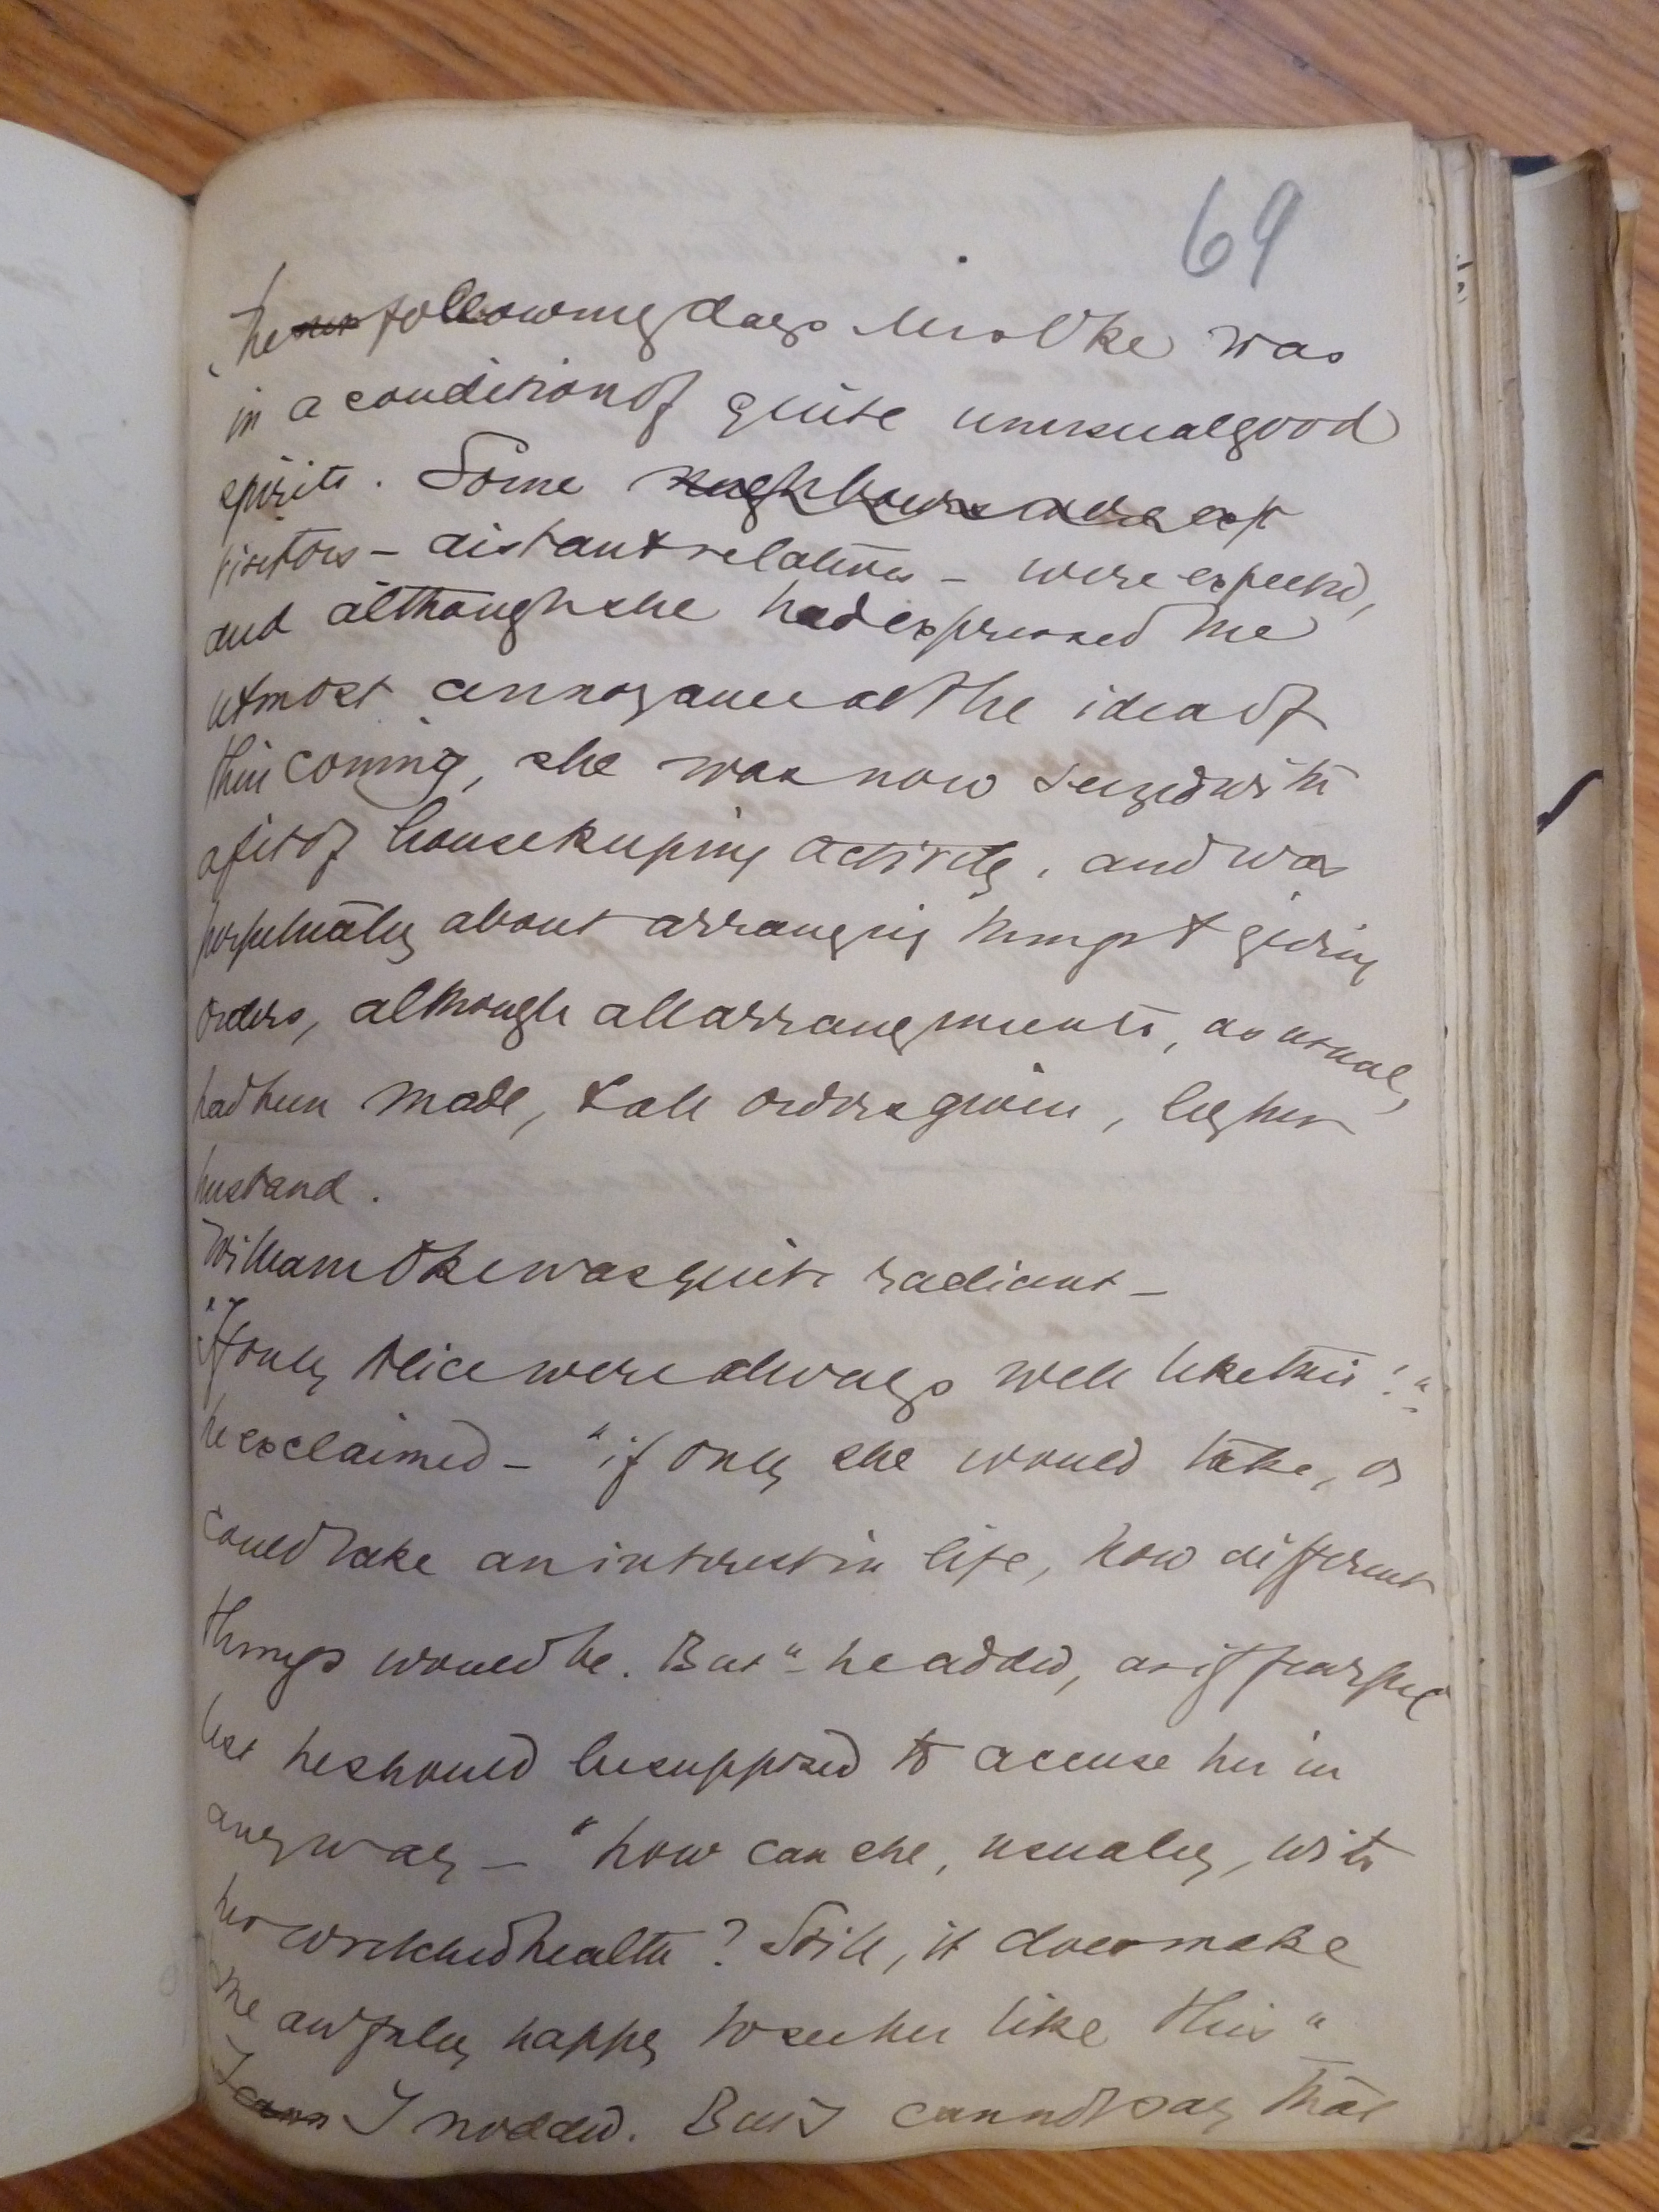 69
The ~~nex~~ following days Mrs Oke was
in a condition of quite unusual good
spirits. Some ~~neighbours were exp~~
visitors – distant relatives – were expected,
and although she had expressed the
utmost annoyance at the idea of
their coming, she was now seized with
a fit of housekeeping activity, and was
perpetually about arranging things & giving
orders, although all arrangements, as usual,
had been made, & all orders given, by her
husband.
William Oke was quite radiant –
"If only Alice were always well like this!"
he exclaimed – "if only she would take, or
could take an interest in life, how different
things would be. But" – he added, as if fearful
lest he should be supposed to accuse her in
any way – "how can she, usually, with
her wretched health? Still, it does make
me awfully happy to see her like this"
~~I cann~~ I nodded. But I cannot say that